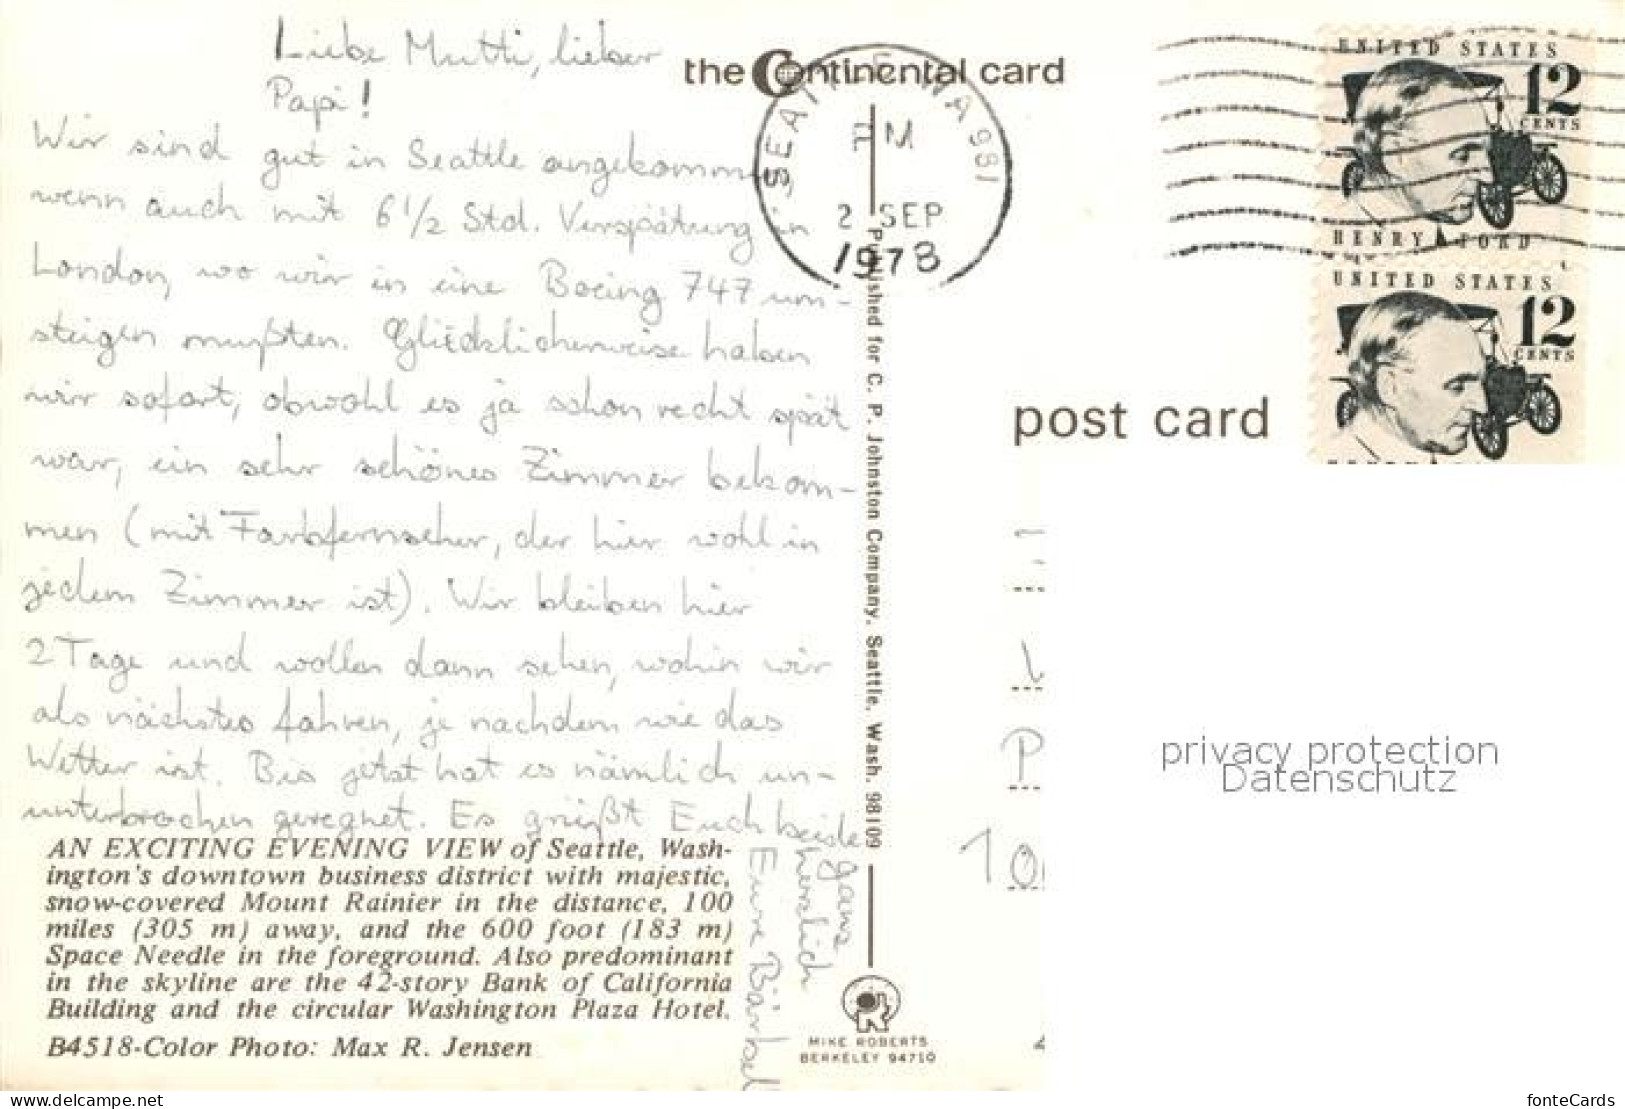 Liebe Mutti, lieber
Papi!
Wir sind gut in Seattle angekommen,
wenn auch mit 6 1/2 Std. Verspätung in
London, wo wir in eine Boeing 747 um-
steigen mußten. Glücklicherweise haben
wir sofort, obwohl es ja schon recht spät
war, ein sehr schönes Zimmer bekom-
men (mit Farbfernseher, der hier wohl in
jedem Zimmer ist). Wir bleiben hier
2 Tage und wollen dann sehen, wohin wir
als nächstes fahren, je nachdem wie das
Wetter ist. Bis jetzt hat es nämlich un-
unterbrochen geregnet. Es grüßt Euch beide
ganz
herzlich
Eure Bärbel
AN EXCITING EVENING VIEW of Seattle, Wash-
ington's downtown business district with majestic,
snow-covered Mount Rainier in the distance, 100
miles (305 m) away, and the 600 foot (183 m)
Space Needle in the foreground. Also predominant
in the skyline are the 42-story Bank of California
Building and the circular Washington Plaza Hotel.
B4518-Color Photo: Max R. Jensen
the Continental card
SEATTLE WA 981
PM
2 SEP
1978
Published for C. P. Johnston Company, Seattle, Wash. 98109
MIKE ROBERTS
BERKELEY 94710
UNITED STATES
12
CENTS
HENRY FORD
UNITED STATES
12
CENTS
post card
P
10
privacy protection
Datenschutz
www.delcampe.net
fonteCards